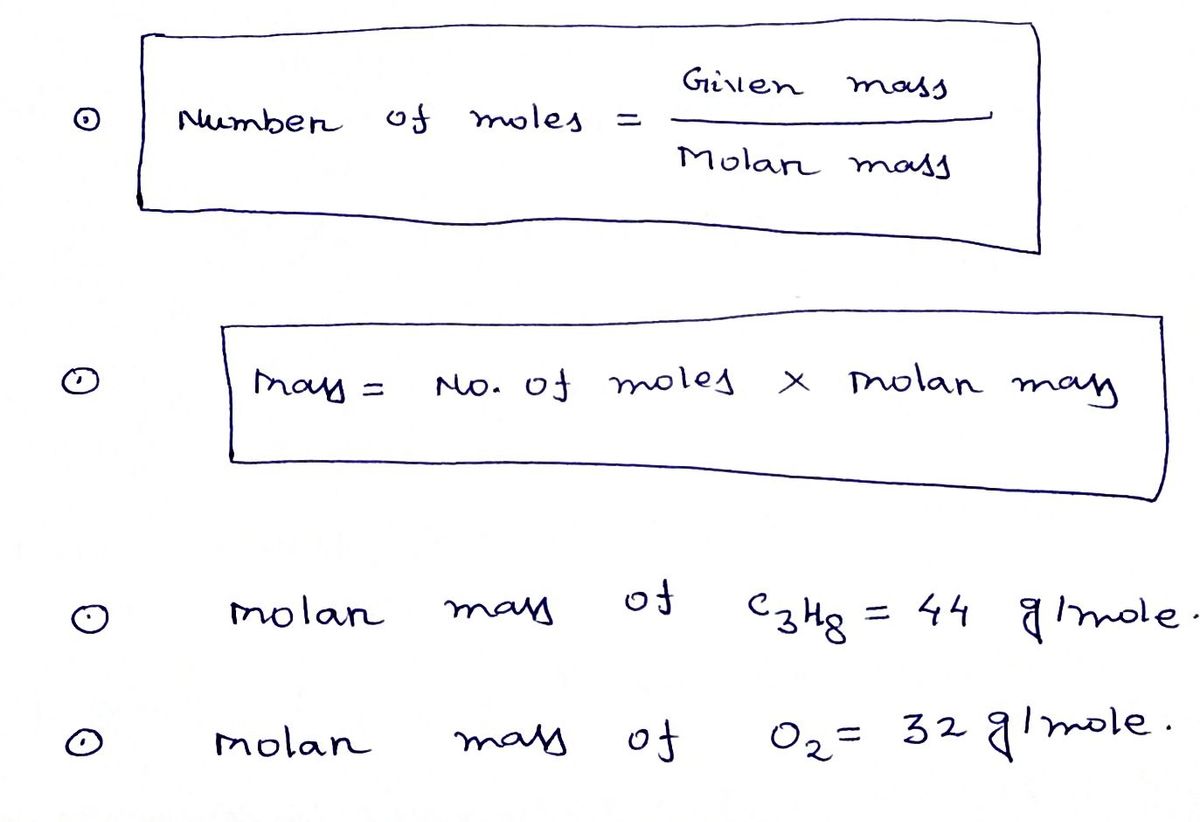 Number of moles = Given mass / Molar mass
Mass = No. of moles x molar mass
molar mass of C3H8 = 44 g/mole.
molar mass of O2 = 32 g/mole.